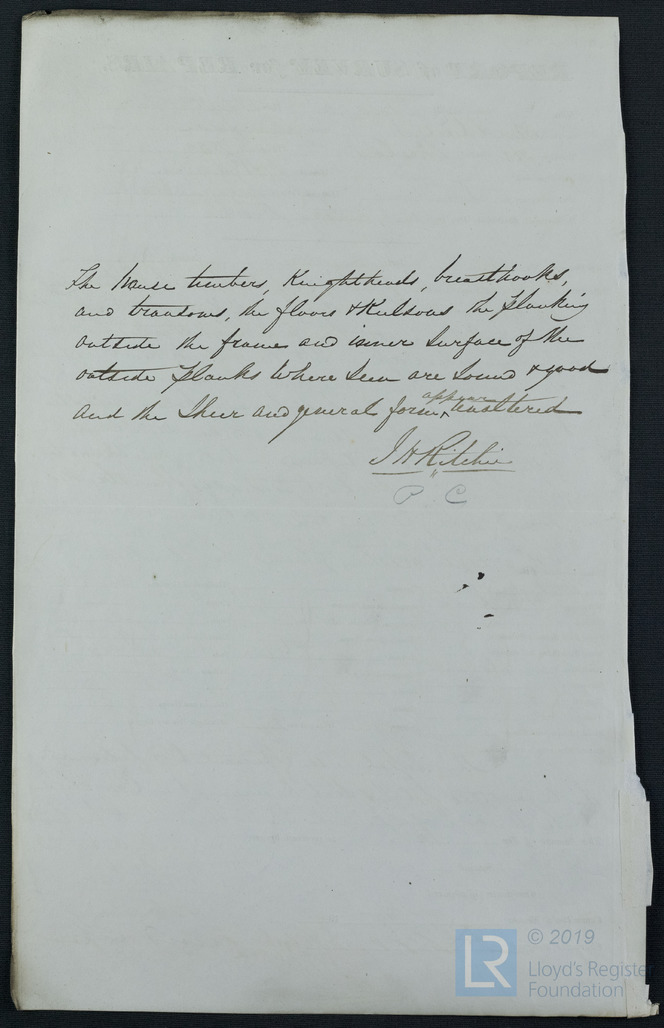 The Hawse timbers, Knightheads, breasthooks,
and transoms, the floors & Kelsons the Planking
outside the frame and inner Surface of the
outside Planks where seen are Sound & good
and the Sheer and general form appear unaltered
J H Ritchie
P C
© 2019
LR
Lloyd's Register
Foundation